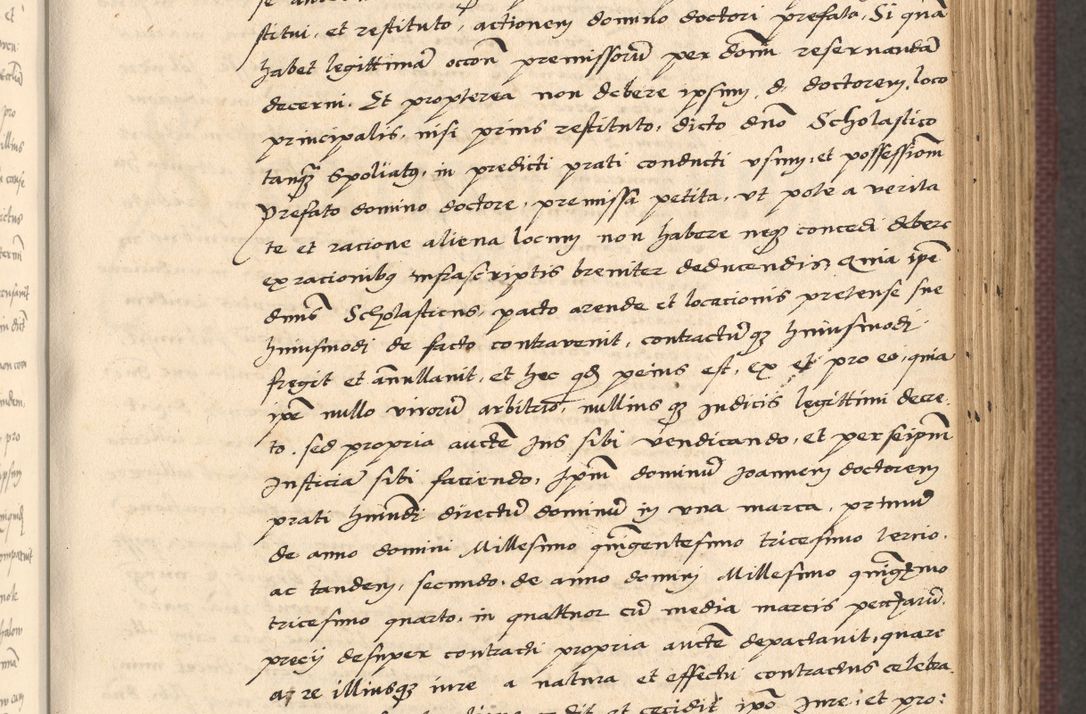 stitui, et restituto, actionem domino doctori prefato, Si quā
habet legittimā occōn premissorū per dōm̄ reservandā
decerni. Et propterea non debere ipsum d. doctorem, loco
principalis, nisi prius restituto, dicto dn̄o Scholastico
tanqȝ Spoliatꝯ, in predicti prati conducti usum, et possessionē
Prefato domino doctore, premissa petita, ut pote a verita
te et racione aliena locum non habere neqȝ concedi debere
ex racionibꝯ infrascriptis breviter deducendis, Quia ip̄e
dn̄us Scholasticus, pacto arende et locacionis pretense sue
huiusmodi de facto contravenit, contractūqȝ huiusmodi
fregit et ānullavit, et hec qd peius est, ex et pro eo, quia
ip̄e nullo virorū arbitrio, nullius qȝ Iudicis legittimi decre
to, sed propria aucte Ius sibi vendicando, et per seip̄m
Iusticiā sibi faciendo, Ip̄m dominū Joannem doctorem
prati hm̄di directū dominū in una marca, primū
de anno domini Millesimo quīngentesimo tricesimo tercio,
ac tandem, secundo, de anno domini Millesimo quīgēmo
tricesimo quarto, in quattuor cū media marcis peccīarū,
precii desuper contracti propria aucte depactavit, quare
a re illiusqȝ iure a natura et effectu contractus celebra
et cecidit ip̄o Iure, et pro: